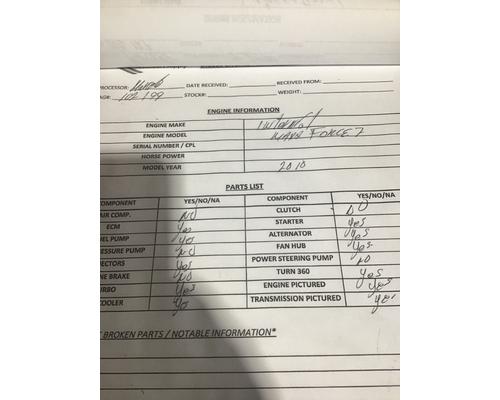 PROCESSOR: DATE RECEIVED: RECEIVED FROM:
AGE: 102,199 STOCK#: WEIGHT:
ENGINE INFORMATION
ENGINE MAKE
ENGINE MODEL MAXX FORCE 7
SERIAL NUMBER / CPL
HORSE POWER
MODEL YEAR 2010
PARTS LIST
COMPONENT YES/NO/NA COMPONENT YES/NO/NA
AIR COMP. NO CLUTCH NO
ECM Yes STARTER Yes
FUEL PUMP Yes ALTERNATOR Yes
ESSURE PUMP NO FAN HUB Yes
ECTORS Yes POWER STEERING PUMP NO
NE BRAKE NO TURN 360 Yes
URBO Yes ENGINE PICTURED Yes
COOLER Yes TRANSMISSION PICTURED Yes
BROKEN PARTS / NOTABLE INFORMATION*